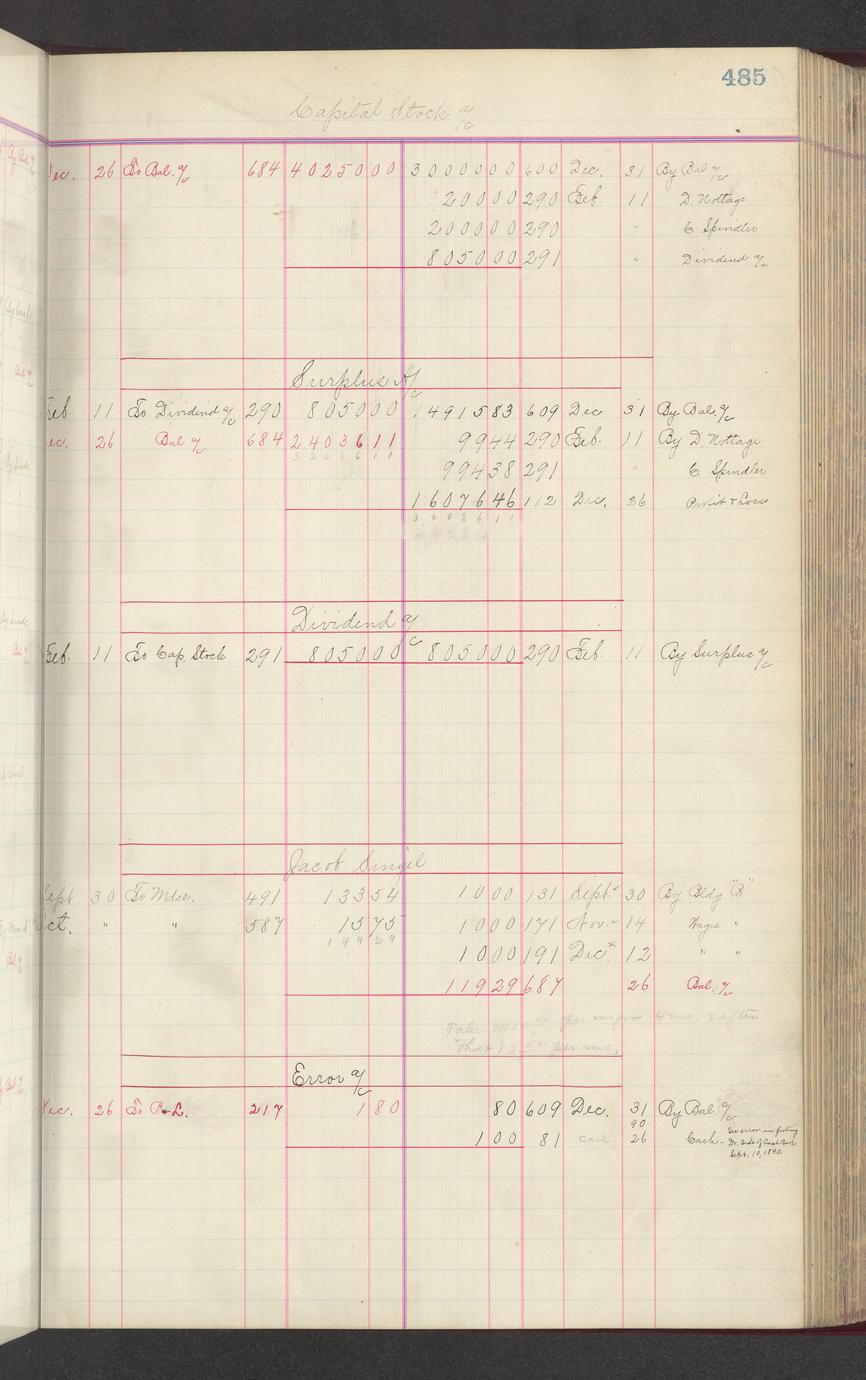 485
Capital Stock a/c
Dec. 26 To Bal. a/c 684 40250 00 30000 00 600 Dec. 31 By Bal a/c
200 00 290 Feb. 11 D. Nottage
2000 00 290 " C Spindler
8050 00 291 " Dividend a/c
Surplus A/c
Feb. 11 To Dividend a/c 290 8050 00 14915 83 609 Dec 31 By Bal. a/c
Dec. 26 Bal a/c 684 24036 11 99 44 290 Feb. 11 By D. Nottage
32086 11 994 38 291 " C Spindler
16076 46 112 Dec. 26 Profit & Loss
32086 11
Dividend a/c
Feb. 11 To Cap. Stock 291 8050 00 8050 00 290 Feb. 11 By Surplus a/c
Jacob Singel
Sept 30 To Mdse. 491 133 54 10 00 131 Sept. 30 By Bldg "B"
Oct. " " 587 15 75 10 00 171 Nov. 14 Wages "
149 29 10 00 191 Dec. 12 " "
119 29 687 26 Bal. a/c
Take off 10 00 per mo for 4 mo. & after
that 15 00 per mo.
Error a/c
Dec. 26 To P & L. 217 1 80 80 609 Dec. 31 By Bal. a/c
90
1 00 81 Cash 26 Cash - See error in footing
Dr. Side of Cash Book
Sept. 10, 1890.